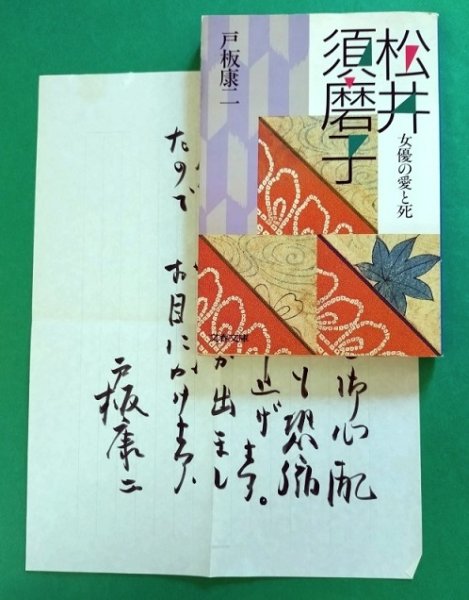 松井
須磨子
女優の愛と死
戸板康二
文春文庫
御心配
恐縮
上げます。
が出まし
たので お目にかけます、
戸板康二